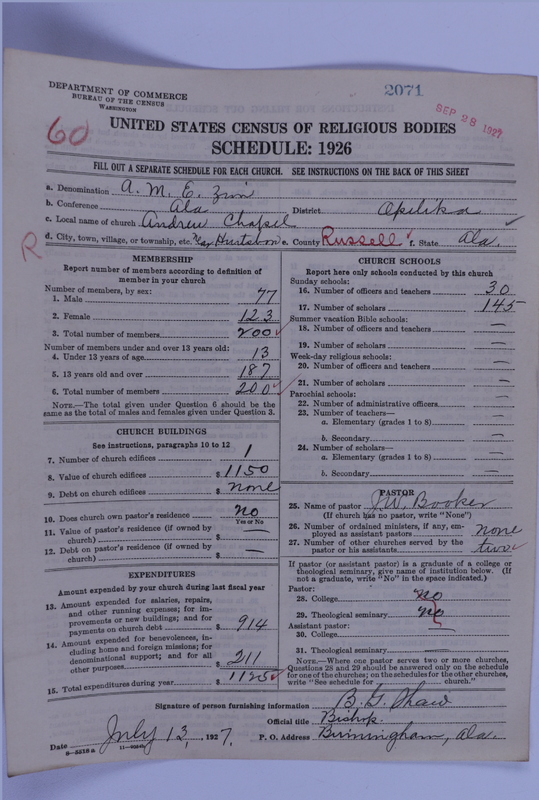 DEPARTMENT OF COMMERCE
BUREAU OF THE CENSUS
WASHINGTON
2071
SEP 28 1927
60
UNITED STATES CENSUS OF RELIGIOUS BODIES
SCHEDULE: 1926
FILL OUT A SEPARATE SCHEDULE FOR EACH CHURCH. SEE INSTRUCTIONS ON THE BACK OF THIS SHEET
a. Denomination A. M. E. Zion
b. Conference Ala District Opelika
c. Local name of church Andrew Chapel
d. City, town, village, or township, etc. Hurtsboro e. County Russell f. State Ala.
R
MEMBERSHIP
Report number of members according to definition of member in your church
Number of members, by sex:
1. Male 77
2. Female 123
3. Total number of members 200
Number of members under and over 13 years old:
4. Under 13 years of age 13
5. 13 years old and over 187
6. Total number of members 200
NOTE.—The total given under Question 6 should be the same as the total of males and females given under Question 3.
CHURCH BUILDINGS
See instructions, paragraphs 10 to 12
7. Number of church edifices 1
8. Value of church edifices $ 1150
9. Debt on church edifices $ None
10. Does church own pastor's residence No
Yes or No
11. Value of pastor's residence (if owned by church) $ —
12. Debt on pastor's residence (if owned by church) $ —
EXPENDITURES
Amount expended by your church during last fiscal year
13. Amount expended for salaries, repairs, and other running expenses; for improvements or new buildings; and for payments on church debt $ 914
14. Amount expended for benevolences, including home and foreign missions; for denominational support; and for all other purposes $ 211
15. Total expenditures during year $ 1125
CHURCH SCHOOLS
Report here only schools conducted by this church
Sunday schools:
16. Number of officers and teachers 30
17. Number of scholars 145
Summer vacation Bible schools:
18. Number of officers and teachers —
19. Number of scholars —
Week-day religious schools:
20. Number of officers and teachers —
21. Number of scholars —
Parochial schools:
22. Number of administrative officers —
23. Number of teachers—
a. Elementary (grades 1 to 8) —
b. Secondary —
24. Number of scholars—
a. Elementary (grades 1 to 8) —
b. Secondary —
PASTOR
25. Name of pastor J. W. Booker
(If church has no pastor, write "None")
26. Number of ordained ministers, if any, employed as assistant pastors none
27. Number of other churches served by the pastor or his assistants two
If pastor (or assistant pastor) is a graduate of a college or theological seminary, give name of institution below. (If not a graduate, write "No" in the space indicated.)
Pastor:
28. College no
29. Theological seminary no
Assistant pastor:
30. College —
31. Theological seminary —
NOTE.—Where one pastor serves two or more churches, Questions 28 and 29 should be answered only on the schedule for one of the churches; on the schedules for the other churches, write "See schedule for church."
Signature of person furnishing information B. G. Shaw
Official title Bishop.
Date July 13, 1927. P. O. Address Birmingham, Ala.